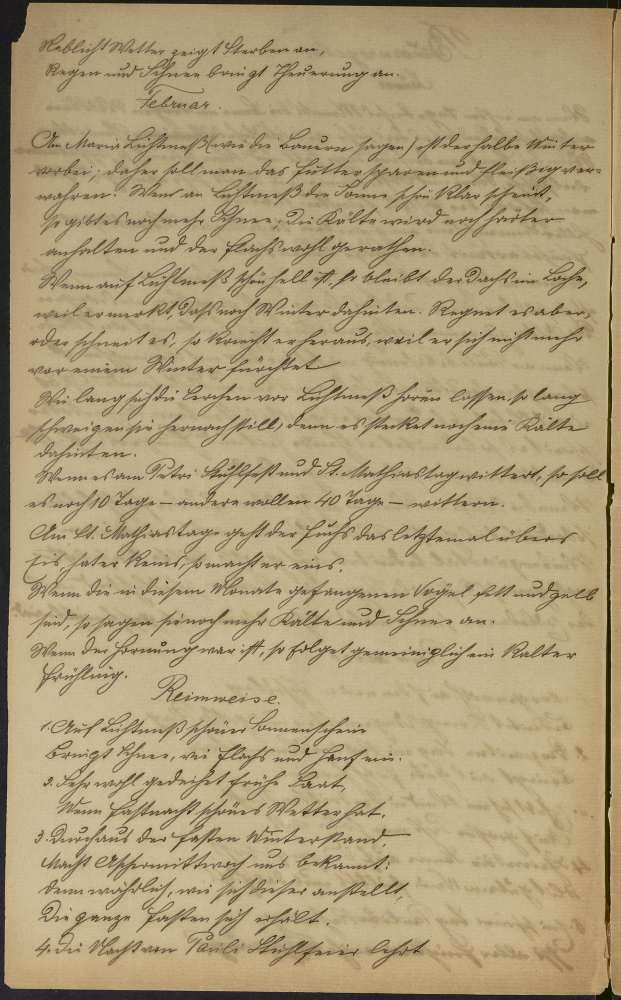 Neblicht Wetter zeigt Sterben an,
Regen und Schnee bringt Theuerung an.
Februar.
Am Maria Lichtmeß (wie die Bauern sagen) ist der halbe Winter
vorbei; daher soll man das Futter sparen und fleißig ver-
wahren. Wenn an Lichtmeß die Sonne schön klar scheint,
so gibt es noch mehr Schnee; die Kälte wird noch harter
anhalten und der Flachs wohl gerathen.
Wenn auf Lichtmeß schön hell ist, so bleibt der Dachs im Loche,
weil er merkt, daß noch Winter dahinten. Regnet es aber,
oder schneit es, so kriecht er heraus, weil er sich nicht mehr
vor einem Winter fürchtet
Wie lang sich die Lerchen vor Lichtmeß hören lassen, so lang
schweigen sie hernach still, denn es stecket noch eine Kälte
dahinten.
Wenn es am Petri Stuhlfest und St. Mathiastag wittert, so soll
es noch 10 Tage — andere wollen 40 Tage — wittern.
Am St. Mathiastage geht der Fuchs das letztemal übers
Eis, hat er keins, so macht er eins.
Wenn die in diesem Monate gefangenen Vögel fett und gelb
sind, so sagen sie noch mehr Kälte und Schnee an.
Wenn der Hornung war ist, so folget gemeiniglich ein kalter
Frühling.
Reimweise.
1. Auf Lichtmeß schöner Sonnenschein
bringt Schnee, wie Flachs und Hanf ein.
2. Sehr wohl gedeihet frühe Saat,
Wenn Fastnacht schönes Wetter hat.
3. Durchaus der Fasten Winterstand,
Macht Aschermittwoch uns bekannt:
denn wahrlich, wie sich dieser anstellt,
Die ganze Fasten sich erhält.
4. Die Nacht von Pauli Stuhlfeier lehrt